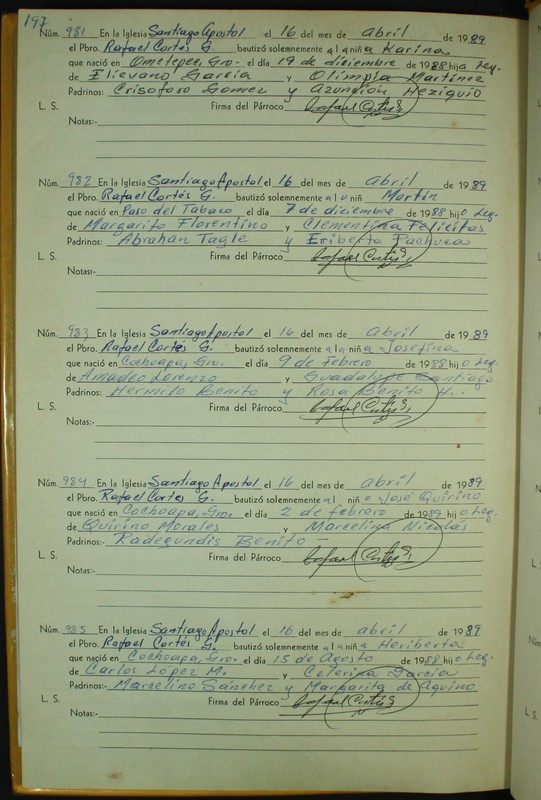 197
Núm. 981 En la Iglesia Santiago Apostol el 16 del mes de abril de 1989
el Pbro. Rafael Cortés G. bautizó solemnemente a la niña Karina
que nació en Ometepec, Gro. el día 19 de diciembre de 1988 hija Leg.
de Elievano García y Olimpia Martínez
Padrinos: Crisoforo Gomez y Azunción Heziquio
L. S. Firma del Párroco Rafael Cortés G.
Notas:-
Núm. 982 En la Iglesia Santiago Apostol el 16 del mes de abril de 1989
el Pbro. Rafael Cortés G. bautizó solemnemente al niñ Martin
que nació en Paso del Tabaco el día 7 de diciembre de 1988 hijo Leg.
de Margarito Florentino y Clementina Felicitas
Padrinos: Abrahan Tagle y Eriberta Pachuca
L. S. Firma del Párroco Rafael Cortés G.
Notas:-
Núm. 983 En la Iglesia Santiago Apostol el 16 del mes de abril de 1989
el Pbro. Rafael Cortés G. bautizó solemnemente a la niña Josefina
que nació en Cochoapa, Gro. el día 9 de febrero de 1988 hijo Leg.
de Amadeo Lorenzo y Guadalupe Santiago
Padrinos: Hermilo Benito y Rosa Benito H.
L. S. Firma del Párroco Rafael Cortés G.
Notas:-
Núm. 984 En la Iglesia Santiago Apostol el 16 del mes de abril de 1989
el Pbro. Rafael Cortés G. bautizó solemnemente al niño José Quirino
que nació en Cochoapa, Gro. el día 2 de febrero de 1989 hijo Leg.
de Quirino Morales y Marcelina Nicolás
Padrinos:- Radegundis Benito —
L. S. Firma del Párroco Rafael Cortés G.
Notas:-
Núm. 985 En la Iglesia Santiago Apostol el 16 del mes de abril de 1989
el Pbro. Rafael Cortés G. bautizó solemnemente a la niña Heriberta
que nació en Cochoapa, Gro. el día 15 de Agosto de 1988 hijo Leg.
de Carlos López M. y Ceterina García
Padrinos:- Marcelino Sánchez y Margarita de Aquino
L. S. Firma del Párroco Rafael Cortés G.
Notas:-